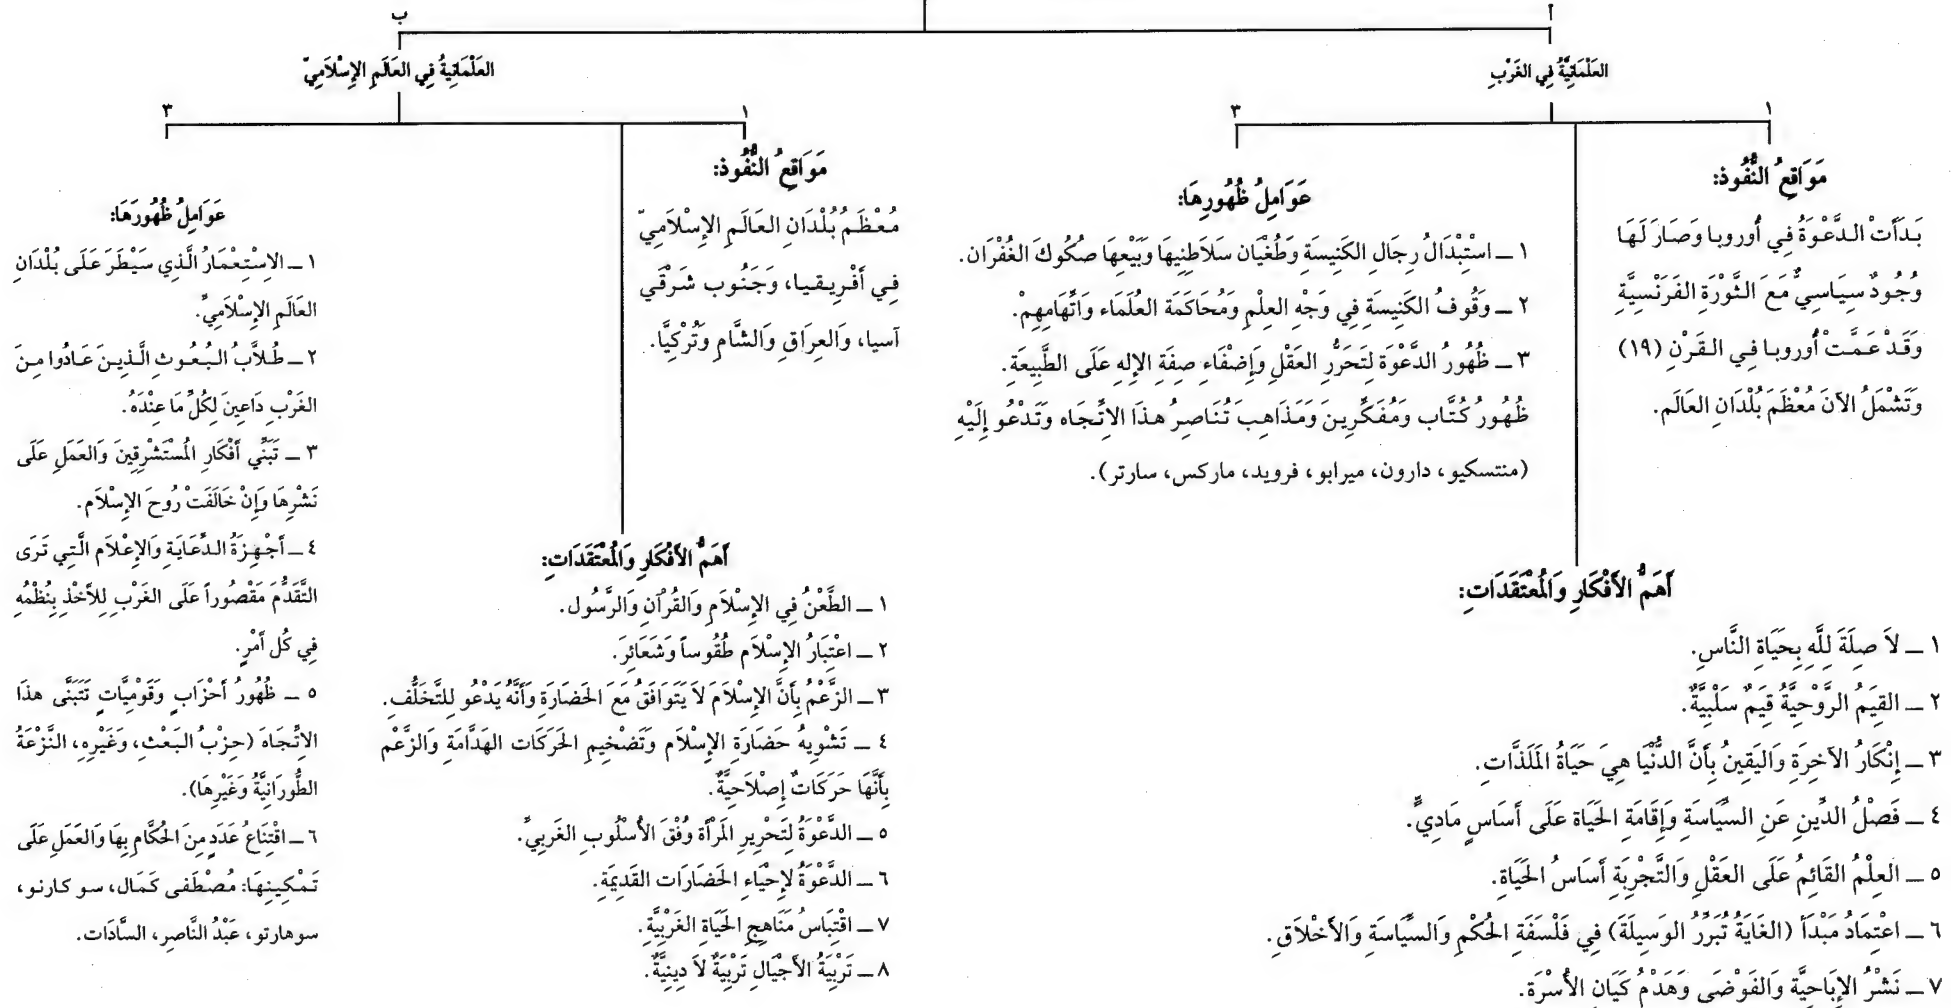 أ
ب
العَلْمَانِيَّةُ فِي الغَرْبِ
١
٣
مَوَاقِعُ النُّفُوذ:
بَدَأَتْ الدَّعْوَةُ فِي أُوروبا وَصَارَ لَهَا
وُجُودٌ سِيَاسِيٌّ مَعَ الثَّوْرَةِ الفَرَنْسِيَّةِ
وَقَدْ عَمَّتْ أُوروبا فِي القَرْنِ (١٩)
وَتَشْمَلُ الآنَ مُعْظَمَ بُلْدَانِ العَالَم.
عَوَامِلُ ظُهُورِهَا:
١ ــ اسْتِبْدَالُ رِجَالِ الكَنِيسَةِ وَطُغْيَان سَلَاطِنِيهَا وَبَيْعِهَا صكُوكَ الغُفْرَان.
٢ ــ وَقُوفُ الكَنِيسَةِ فِي وَجْهِ العِلْمِ وَمُحَاكَمَة العُلَمَاء وَاتِّهَامِهِمْ.
٣ ــ ظُهُورُ الدَّعْوَة لِتَحَرُّرِ العَقْلِ وَإِضْفَاءِ صِفَةِ الإِلهِ عَلَى الطَّبِيعَةِ.
ظُهُورُ كُتَّاب وَمُفَكِّرِينَ وَمَذَاهِبَ تُنَاصِرُ هذَا الاتِّجَاه وَتَدْعُو إِلَيْهِ
(منتسكيو، دارون، ميرابو، فرويد، ماركس، سارتر).
أَهَمُّ الأَفْكَارِ وَالمُعْتَقَدَاتِ:
١ ــ لاَ صِلَةَ لِلَّهِ بِحَيَاةِ النَّاسِ.
٢ ــ القِيَمُ الرَّوْحِيَّةُ قِيَمٌ سَلْبِيَّةٌ.
٣ ــ إِنْكَارُ الآخِرَةِ وَاليَقِينُ بِأَنَّ الدُّنْيَا هِيَ حَيَاةُ المَلَذَّاتِ.
٤ ــ فَصْلُ الدِّينِ عَنِ السِّيَاسَةِ وَإِقَامَةِ الحَيَاة عَلَى أَسَاسٍ مَادِيٍّ.
٥ ــ العِلْمُ القَائِمُ عَلَى العَقْلِ وَالتَّجْرِبَةِ أَسَاسُ الحَيَاةِ.
٦ ــ اعْتِمَادُ مَبْدَأ (الغَايَةُ تُبَرِّرُ الوَسِيلَةَ) فِي فَلْسَفَةِ الحُكْمِ وَالسِّيَاسَةِ وَالأَخْلَاقِ.
٧ ــ نَشْرُ الإِبَاحِيَّةِ وَالفَوْضَى وَهَدْمُ كَيَانِ الأُسْرَةِ.
العَلْمَانِيَةُ فِي العَالَمِ الإِسْلاَمِيِّ
١
٣
مَوَاقِعُ النُّفُوذ:
مُعْظَمُ بُلْدَانِ العَالَمِ الإِسْلاَمِيِّ
فِي أَفْرِيقيا، وَجَنُوب شَرْقِي
آسيا، وَالعِرَاقِ وَالشَّامِ وَتُرْكِيَّا.
أَهَمُّ الأَفْكَارِ وَالمُعْتَقَدَاتِ:
١ ــ الطَّعْنُ فِي الإِسْلاَمِ وَالقُرْآنِ وَالرَّسُول.
٢ ــ اعْتِبَارُ الإِسْلاَمِ طُقُوساً وَشَعَائِرَ.
٣ ــ الزَّعْمُ بِأَنَّ الإِسْلاَمَ لاَ يَتَوَافَقُ مَعَ الحَضَارَةِ وَأَنَّهُ يَدْعُو لِلتَّخَلُّفِ.
٤ ــ تَشْوِيهُ حَضَارَةِ الإِسْلاَم وَتَضْخِيمِ الحَرَكَات الهَدَّامَةِ وَالزَّعْم
بِأَنَّهَا حَرَكَاتٌ إِصْلاَحِيَّةٌ.
٥ ــ الدَّعْوَةُ لِتَحْرِيرِ المَرْأَة وَفْقَ الأُسْلُوبِ الغَربِيِّ.
٦ ــ الدَّعْوَةُ لإِحْيَاءِ الحَضَارَات القَدِيمَةِ.
٧ ــ اقْتِبَاسُ مَنَاهِجِ الحَيَاةِ الغَرْبِيَّةِ.
٨ ــ تَرْبِيَةُ الأَجْيَالِ تَرْبِيَةٌ لاَ دِينِيَّةٌ.
عَوَامِلُ ظُهُورهَا:
١ ــ الاسْتِعْمَارُ الَّذِي سَيْطَرَ عَلَى بُلْدَانِ
العَالَمِ الإِسْلاَمِيِّ.
٢ ــ طُلاَّبُ البُعُوثِ الَّذِينَ عَادُوا مِنَ
الغَرْبِ دَاعِينَ لِكُلِّ مَا عِنْدَهُ.
٣ ــ تَبَنِّي أَفْكَارِ المُسْتَشْرِقِينَ وَالعَمَلِ عَلَى
نَشْرِهَا وَإِنْ خَالَفَتْ رُوحَ الإِسْلاَم.
٤ ــ أَجْهِزَةُ الدِّعَايَةِ وَالإِعْلاَم الَّتِي تَرَى
التَّقَدُّمَ مَقْصُوراً عَلَى الغَرْبِ لِلأَخْذِ بِنُظُمِهِ
فِي كُل أَمْرٍ.
٥ ــ ظُهُورُ أَحْزَابٍ وَقَوْمِيَّاتٍ تَتَبَنَّى هذَا
الاتِّجَاهَ (حِزْبُ البَعْث، وَغَيْرِهِ، النَّزْعَةُ
الطُّورَانِيَّةُ وَغَيْرِهَا).
٦ ــ اقْتِنَاعُ عَدَدٍ مِنَ الحُكَّامِ بِهَا وَالعَمَلِ عَلَى
تَمْكِينِهَا: مُصْطَفى كَمَال، سو كارنو،
سوهارتو، عَبْدُ النَّاصِر، السَّادَات.